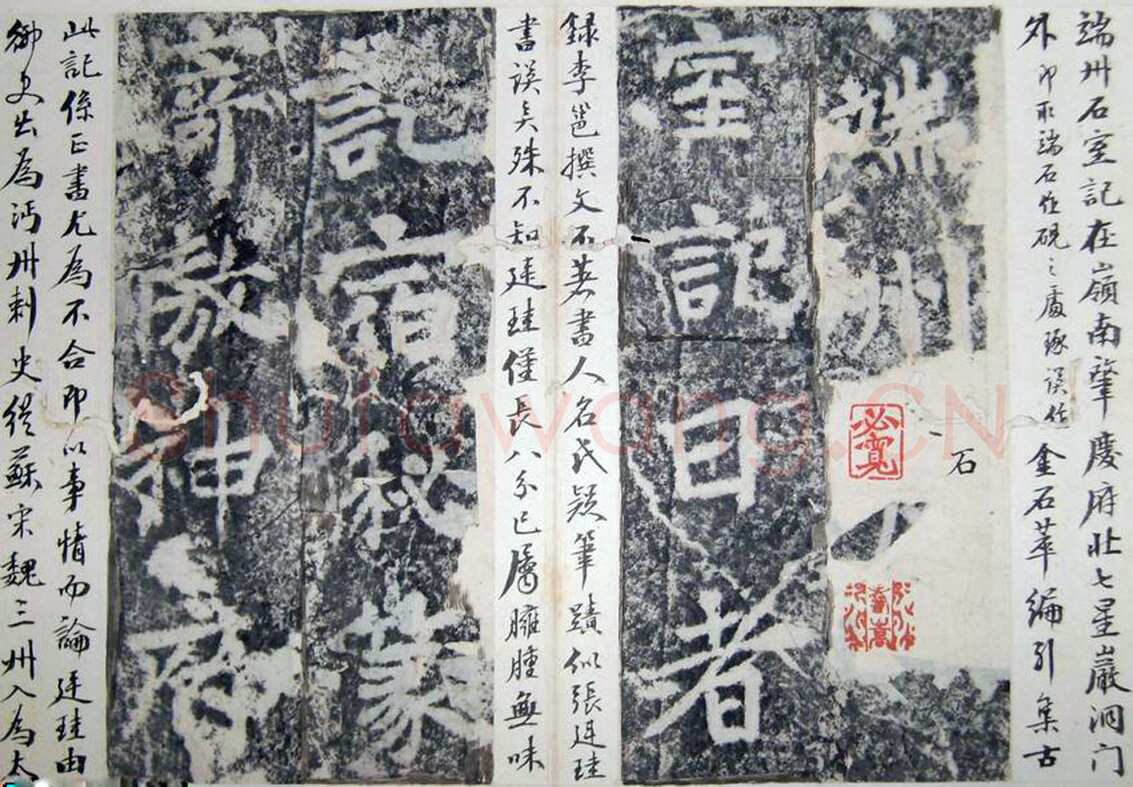 端州石室記在嶺南肇慶府北七星巖洞门
外 即取端石作硯之處 金石萃編引集古
端州
石
室記日者
錄李邕撰文不著書人名氏疑筆蹟似張廷珪
書误矣殊不知廷珪僅長八分已屬臃腫無味
宿篆
神府
此記係正書尤為不合即以事情而論廷珪由
御史出為沔州刺史從蘇宋魏三州入為太
Shufawang.CN